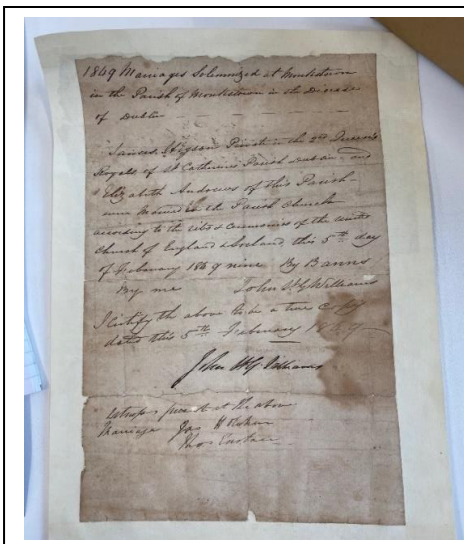 1849 Marriages Solemnized at Monkstown
in the Parish of Monkstown in the Diocese
of Dublin
James Private in the 2nd Queen's
Royals of St Catherine's Parish Dublin and
Elizabeth Andrews of this Parish
were Married in the Parish Church
according to the rites & Ceremonies of the United
Church of England & Ireland, this 5th day
of February 1849 nine By Banns
By me John W G Williams
I certify the above to be a true Copy
dated this 5th February 1849
John W G Williams
present at the above
Marriage Jas H
Thos Eustace